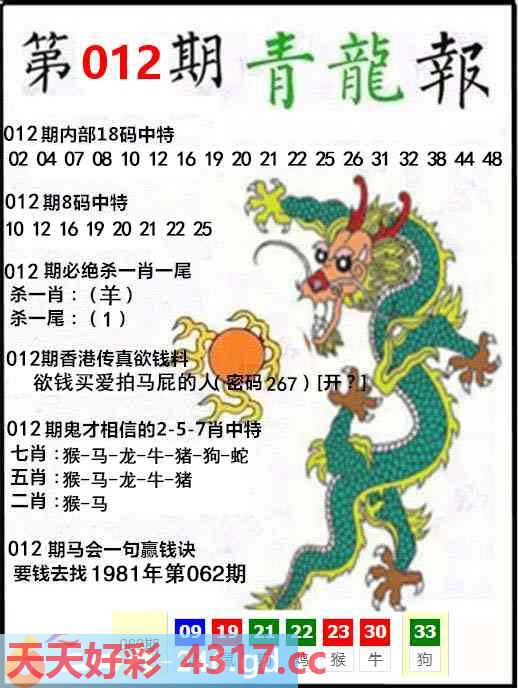 第012期 青龍報
012期内部18码中特
02 04 07 08 10 12 16 19 20 21 22 25 26 31 32 38 44 48
012期8码中特
10 12 16 19 20 21 22 25
012期必绝杀一肖一尾
杀一肖：（羊）
杀一尾：（1）
012期香港传真欲钱料
欲钱买爱拍马屁的人（密码267）[开？]
012期鬼才相信的2-5-7肖中特
七肖：猴-马-龙-牛-猪-狗-蛇
五肖：猴-马-龙-牛-猪
二肖：猴-马
012期马会一句赢钱诀
要钱去找1981年第062期
09 19 21 22 23 30 33
鼠 鸡 猴 牛 狗
天天好彩 4317.cc